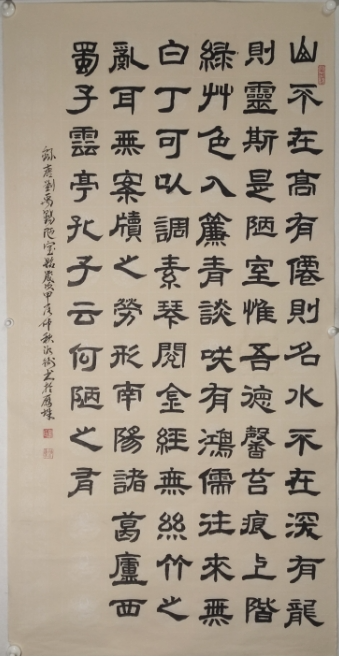 山不在高有僊則名水不在深有龍
則靈斯是陋室惟吾德馨苔痕上階
綠艸色入簾青談咲有鴻儒往來無
白丁可以調素琴閱金經無絲竹之
亂耳無案牘之勞形南陽諸葛廬西
蜀子雲亭孔子云何陋之有
錄唐劉禹錫陋室銘歲次甲辰仲秋